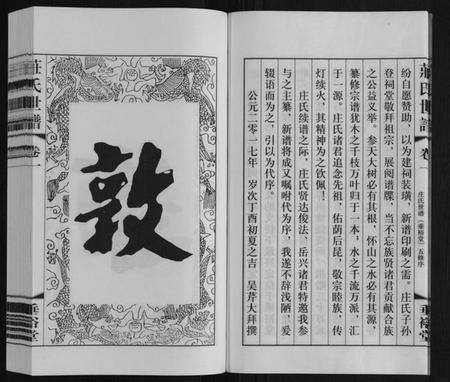 纷自愿赞助，以为建祠装璜、新谱印刷之需。庄氏子孙
登祠堂敬拜祖宗，展阅谱牒，当不忘族贤诸君贡献合族
之公益义举。参天大树必有其根，怀山之水必有其源，
纂修宗谱犹木之千枝万叶归于一本，水之千流万派，汇
于一源。庄氏诸君追念先祖，佑荫后昆，敬宗睦族，传
灯续火，其精神为之钦佩！
庄氏续谱之际，庄氏贤达俊法、岳兴诸君特邀我参
与之主纂，新谱将成又嘱咐代为序，我遂不辞浅陋，爰
辍语而为之，引以为代序。
公元二零一七年 岁次丁酉初夏之吉 吴芹大拜撰
莊氏世譜
卷一
庄氏世谱（垂裕堂）五修序
垂裕堂
敦
莊氏世譜
卷一
垂裕堂